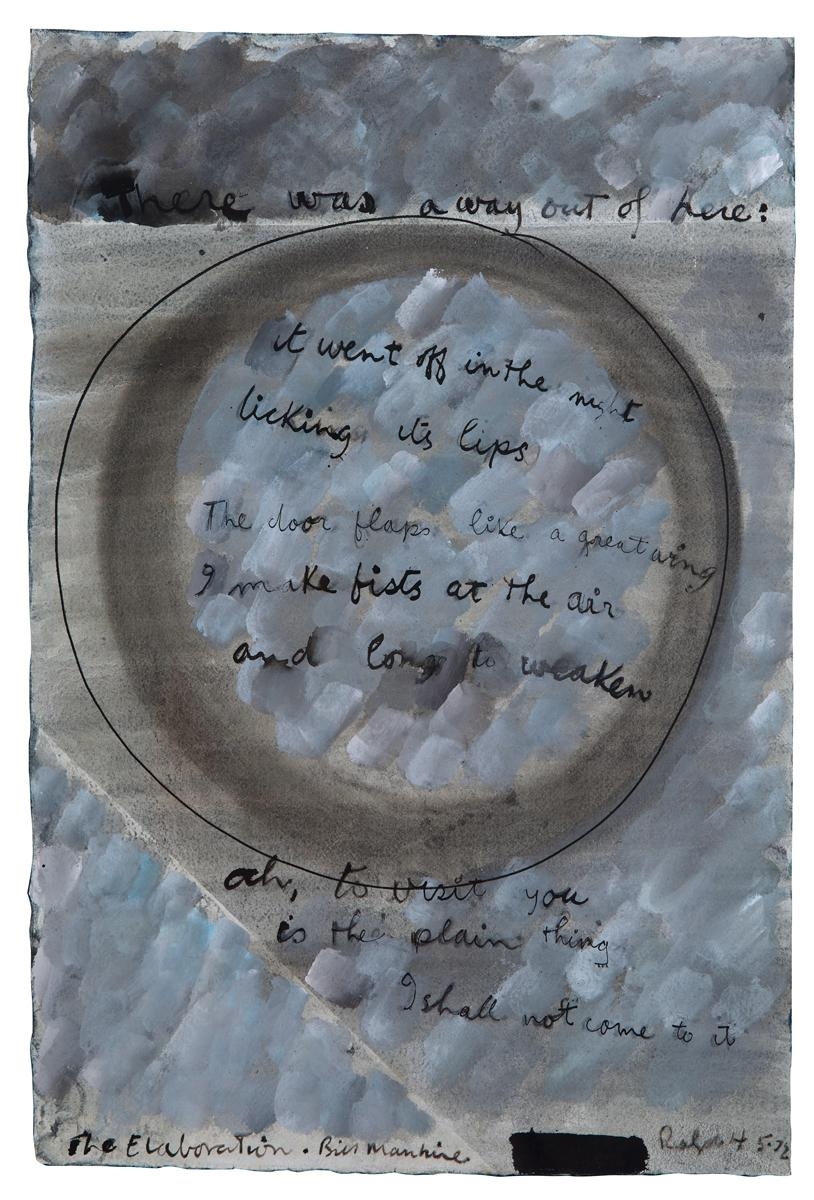 There was a way out of here:
it went off in the night
licking its lips
The door flaps like a great wing
I make fists at the air
and long to weaken
ah, to visit you
is the plain thing
I shall not come to it
The Elaboration. Bill Manhire
Ralph H 5-72